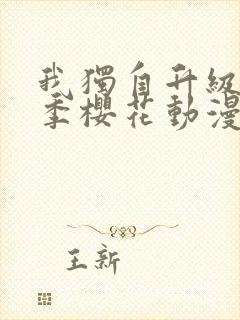 我獨自升級
季櫻花動漫
王新